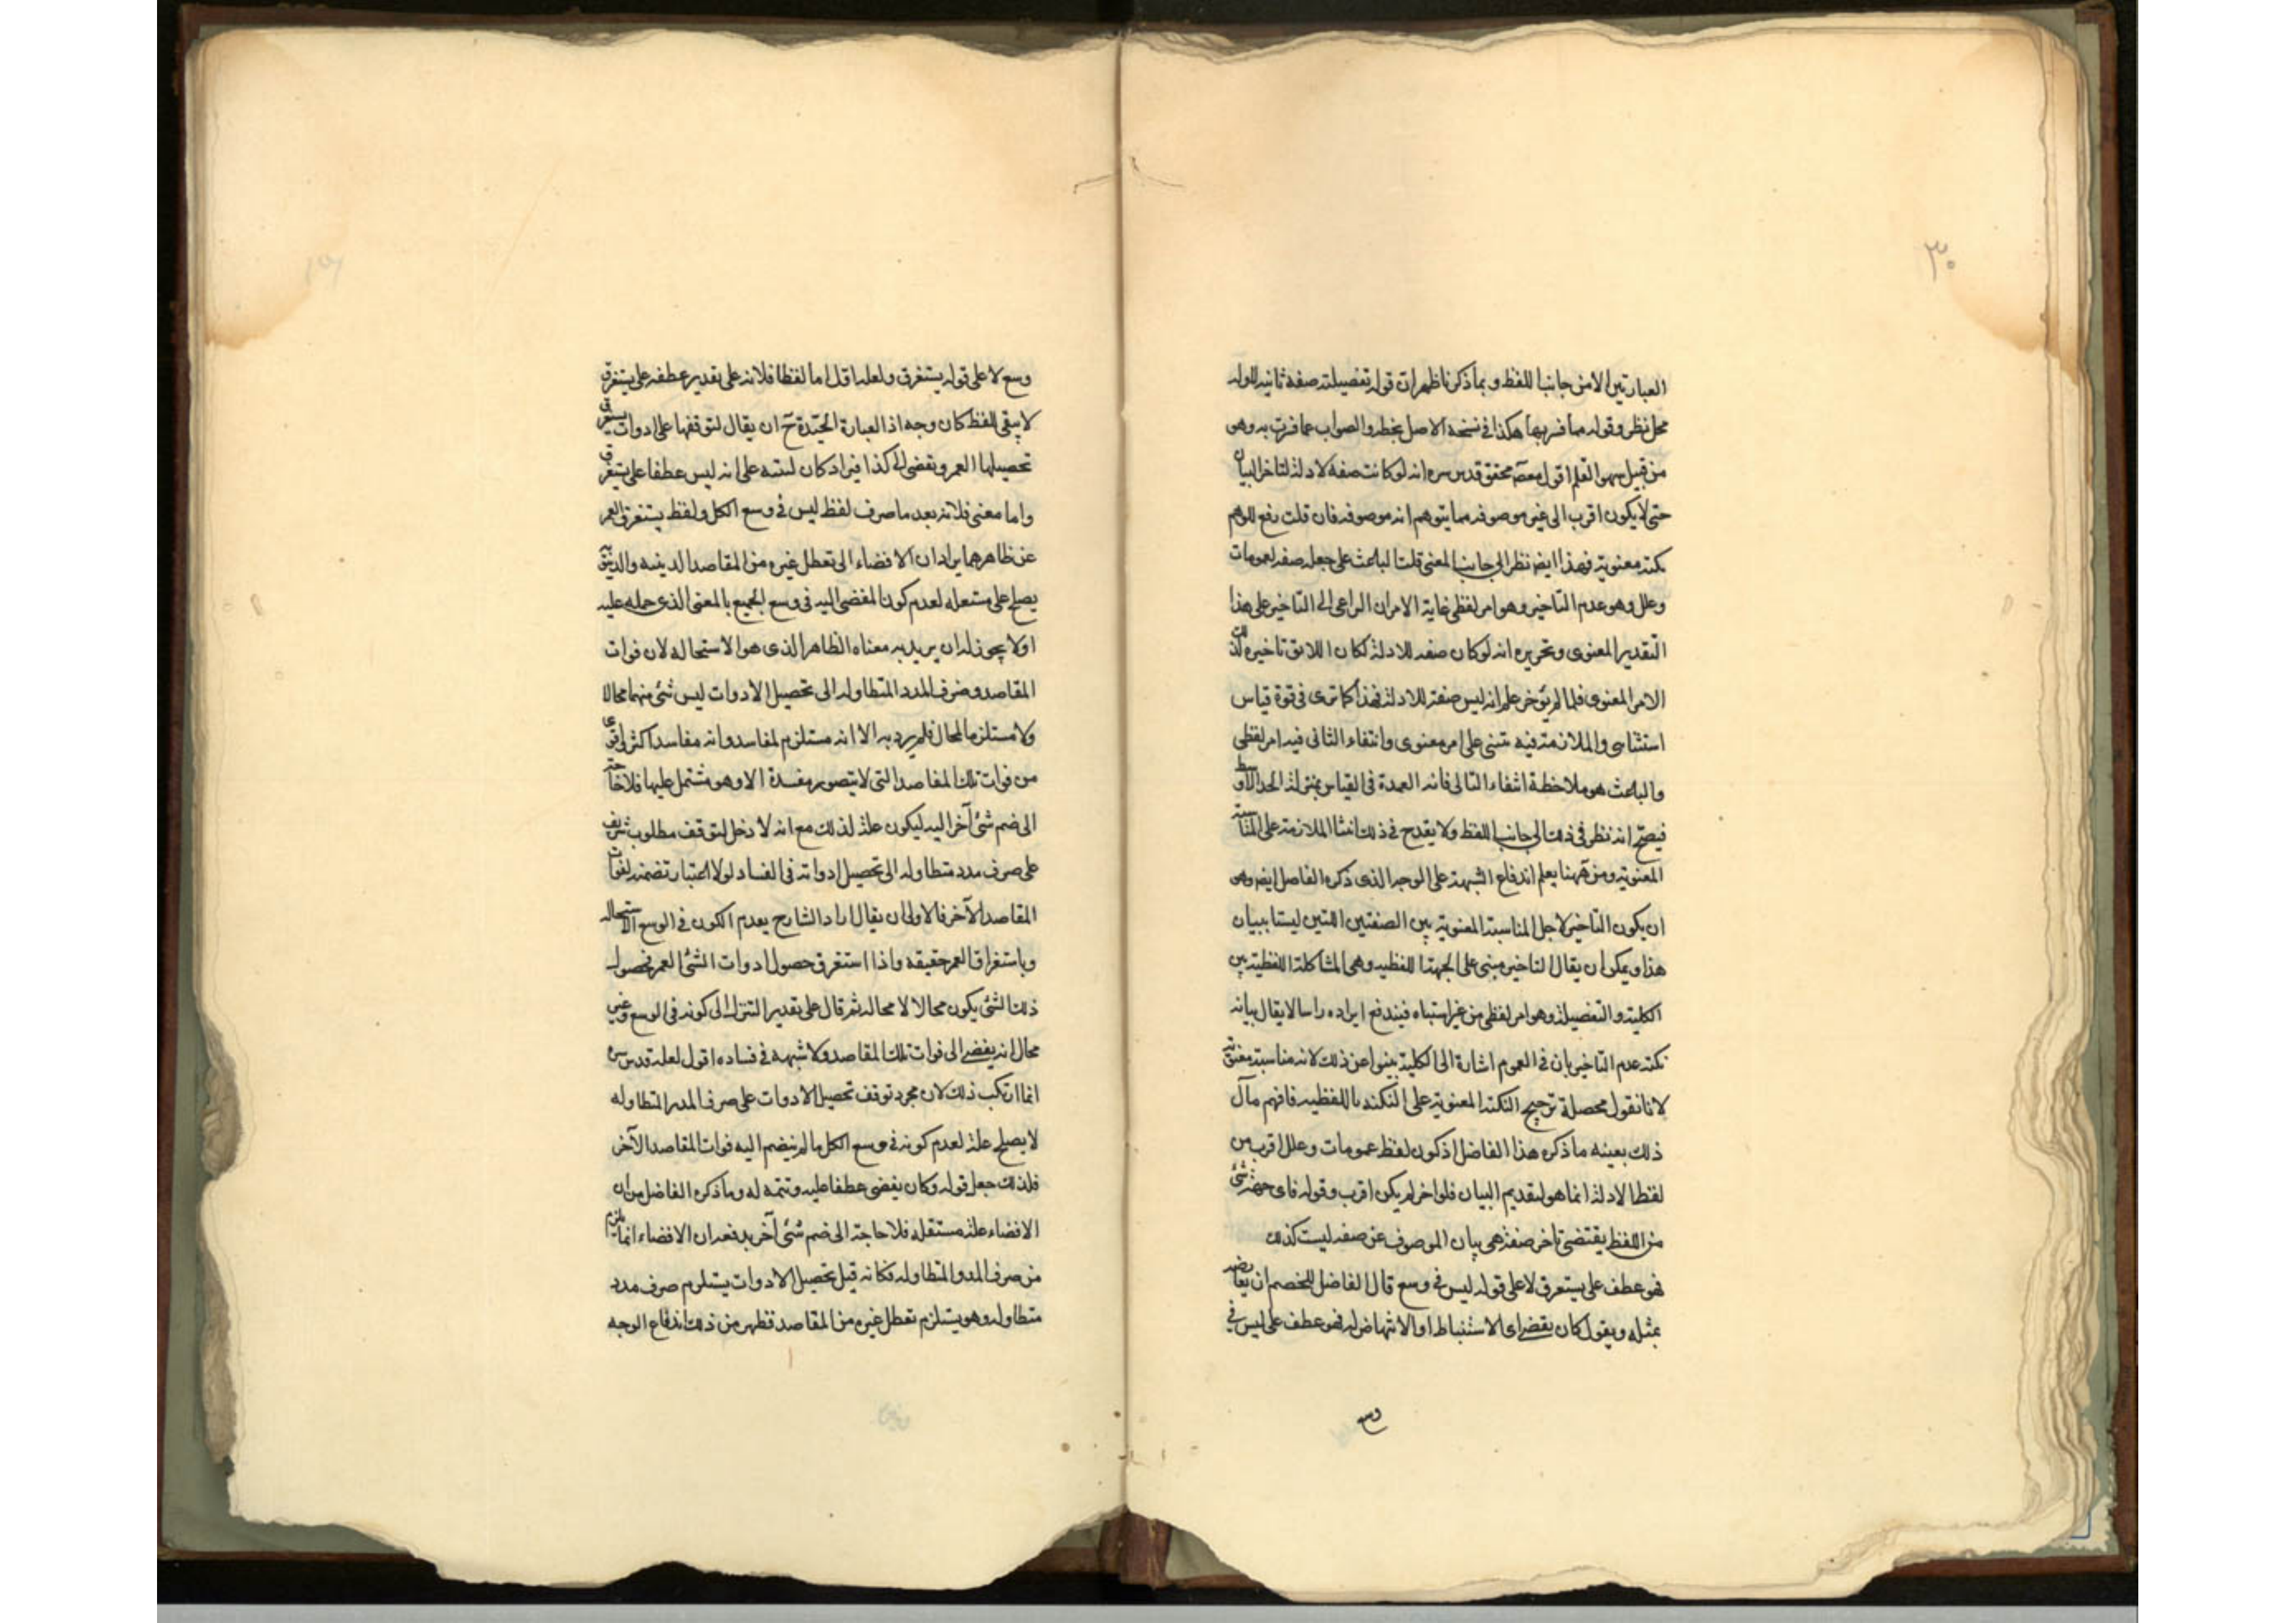 ٣٠
العبارتين الا من جانب اللفظ و بما ذكرنا ظهر ان قوله تفصيلته صفة ثانية للادلة
محل نظر و قوله مما فر بها هكذا فى نسخة الاصل بخطه و الصواب عما فرت به وهو
من قبيل سهو القلم اقول محقق قدس سره انه لو كانت صفة لادلة لتاخر البيان
حتى لا يكون اقرب الى غير موصوفه مما يتوهم انه موصوفه فان قلت رفع الوهم
نكتة معنوية فهذا ايض نظر الى جانب المعنى قلت الباعث على جعله صفة لعمومات
وعلل وهو عدم التاخير وهو امر لفظى غاية الامر ان الداعى الى التاخير على هذا
التقدير المعنوى وتحريره انه لو كان صفة للادلة لكان اللايق تاخيره لذلك
الامر المعنوى فلما لم يؤخر علم انه ليس صفة للادلة فهذا كما ترى فى قوة قياس
استثنائى والملازمة فيه تبتنى على امر معنوى وانتفاء الثانى فيه امر لفظى
والباعث هو ملاحظة انتفاء التالى فانه العمدة فى القياس بمنزلة الحد الاوسط
فيصح انه نظر فى ذلك الى جانب اللفظ ولا يقدح فى ذلك ابتناء الملازمة على المناسبة
المعنوية ومن ههنا يعلم اندفاع الشبهة على الوجه الذى ذكره الفاضل ايض وهو
ان يكون التاخير لاجل المناسبة المعنوية بين الصفتين اللتين ليستا ببيان
هذا ويمكن ان يقال التاخير مبنى على الجهة اللفظية وهى المشاكلة اللفظية بين
الكلية والتفصيلة وهو امر لفظى من غير اشتباه فيندفع ايراده راسا لا يقال بيانه
نكتة عدم التاخير بان فى العموم اشارة الى الكلية ينبو عن ذلك لانه مناسبة معنوية
لانا نقول محصلة ترجيح النكتة المعنوية على النكتة اللفظية فافهم مآل
ذلك بعينه ما ذكره هذا الفاضل اذ كون لفظ عمومات وعلل اقرب من
لفظ الادلة انما هو لتقديم البيان فلو اخر لم يكن اقرب وقوله فاى شئ
من اللفظ يقتضى تاخر صفة هى بيان الموصوف عن صفة ليست كذلك
فهو عطف على يستغرق لا على قوله ليس فى وسع قال الفاضل للخصم ان يعارضه
بمثله ويقول كان يفضى اى الاستنباط او الانتهاض له فهو عطف على ليس فى
وسع
وسع لا على قوله يستغرق ولعله اقل اما لفظا فلانه على تقدير عطفه على يستغرق
لا يبقى للفظ كان وجه اذ العبارة الجيدة ح ان يقال لتوقفها على ادوات يستغرق
تحصيلها العمر ويفضى الى كذا فيراد كان لتنبه على انه ليس عطفا على يستغرق
واما معنى فلانه بعد ما صرف لفظ ليس فى وسع الكل ولفظ يستغرق العمر
عن ظاهرهما يراد ان الافضاء الى تعطل غيره من المقاصد الدينيه والدنيوية
يصلح على مستقله لعدم كون المفضى اليه فى وسع الجميع بالمعنى الذى حمله عليه
اولا يجوز له ان يريد به معناه الظاهر الذى هو الاستحاله لان فوات
المقاصد وصرف المدد المتطاوله الى تحصيل الادوات ليس شئ منهما محالا
ولا مستلزما لمحال فلم يرد به الا انه مستلزم لمفاسد وانه مفاسد اكثر اقوى
من فوات تلك المقاصد التى لا يتصور مفسدة الا وهو مشتمل عليها فلا حاجة
الى ضم شئ آخر اليه ليكون علة لذلك مع انه لا دخل لتوقف مطلوب شريف
على صرف مدد متطاوله الى تحصيل ادواته فى الفساد لولا اعتبار تضمنه لفوات
المقاصد الآخر فالاولى ان يقال اراد الشارح بعدم الكون فى الوسع الاستحاله
وباستغراق العمر حقيقه واذا استغرق حصول ادوات الشئ العمر فحصول
ذلك الشئ يكون محالا لا محالة ثم قال على تقدير التنزل الى كونه فى الوسع وغير
محال انه يفضى الى فوات تلك المقاصد ولا شبهه فى فساده اقول لعله قدس سره
انما ارتكب ذلك لان مجرد توقف تحصيل الادوات على صرف المدد المتطاوله
لا يصلح علة لعدم كونه فى وسع الكل ما لم ينضم اليه فوات المقاصد الآخر
فلذلك جعل قوله وكان يفضى عطفا عليه وتتمه له وما ذكره الفاضل من ان
الافضاء علة مستقله فلا حاجة الى ضم شئ آخر يدفعه ان الافضاء انما يلزم
من صرف المدد المتطاوله فكانه قيل تحصيل الادوات يستلزم صرف مدد
متطاوله وهو يستلزم تعطل غيره من المقاصد فظهر من ذلك اندفاع الوجه